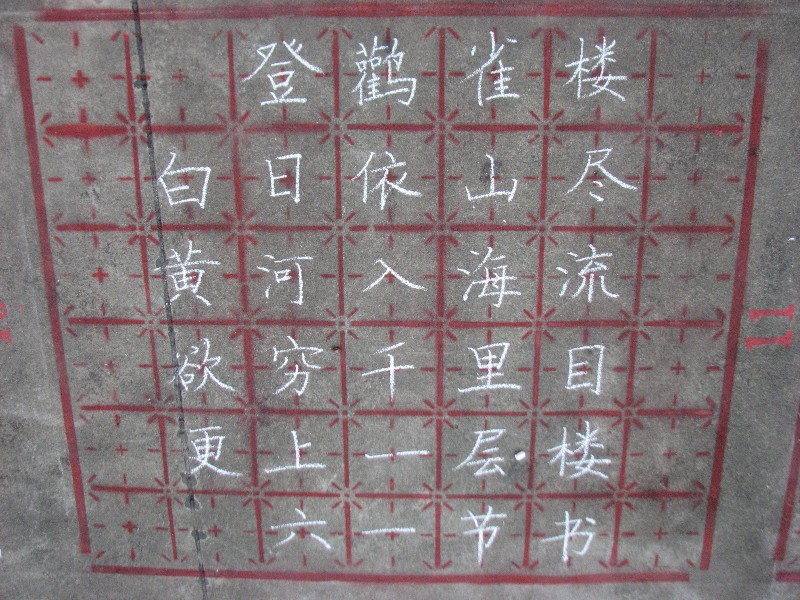 登鸛雀楼
白日依山尽
黄河入海流
欲穷千里目
更上一层楼
六一节书
11